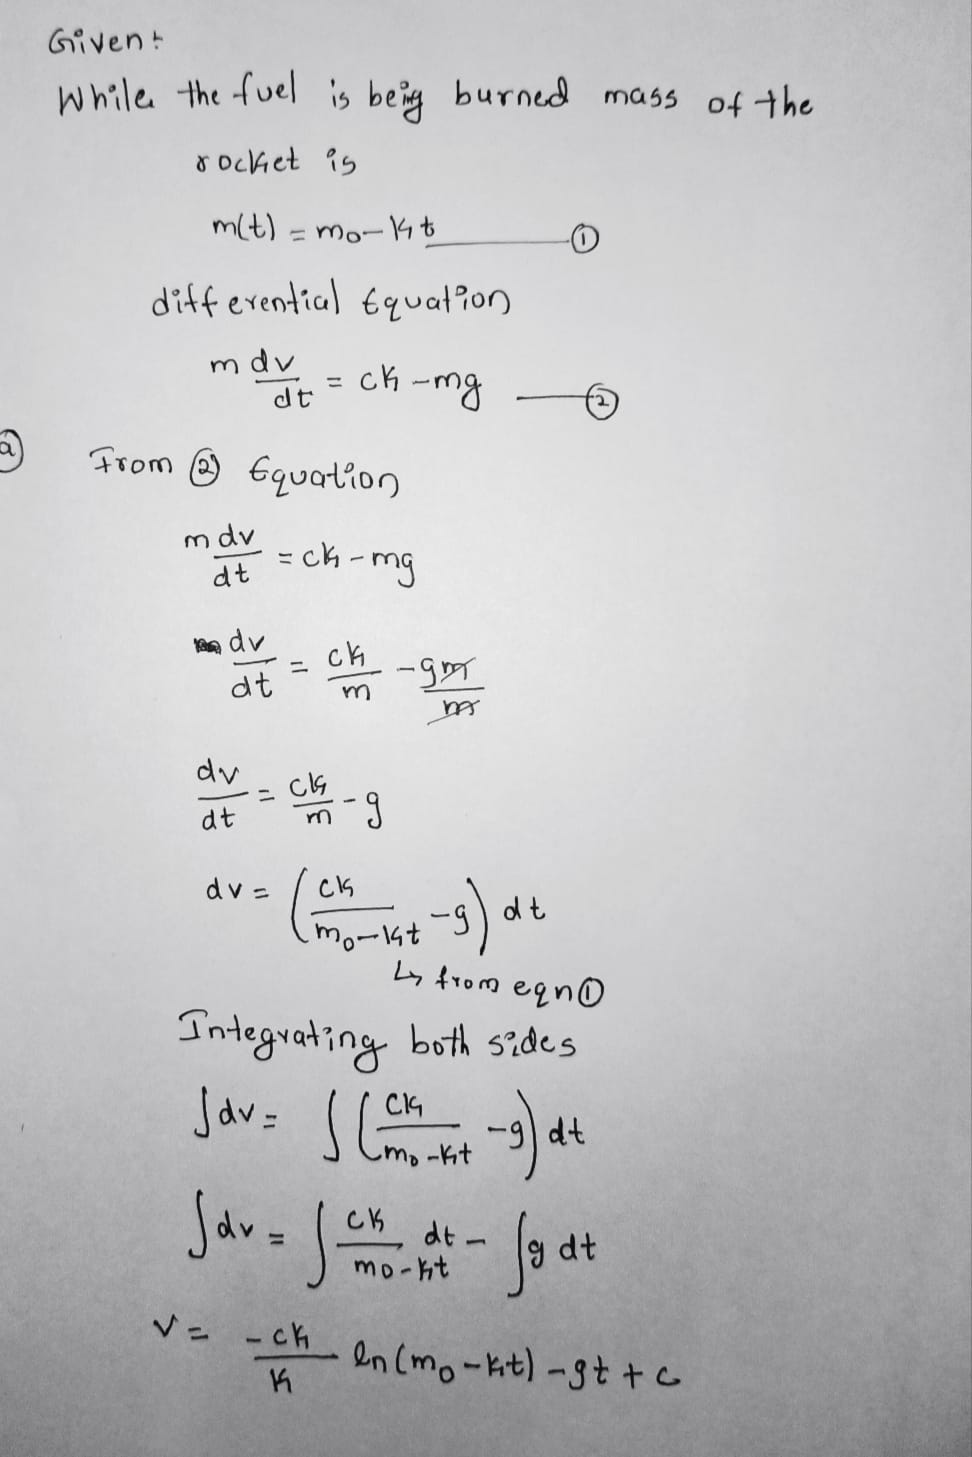 Given:
While the fuel is being burned mass of the
rocket is
m(t) = m₀ - kt ——— ①
differential Equation
m dv/dt = ck - mg —— ②
ⓐ From ② Equation
m dv/dt = ck - mg
dv/dt = ck/m - gm/m
dv/dt = ck/m - g
dv = (ck/(m₀ - kt) - g) dt
↳ from eqn ①
Integrating both sides
∫dv = ∫(ck/(m₀ - kt) - g) dt
∫dv = ∫ ck/(m₀ - kt) dt - ∫g dt
v = -ck/k ln(m₀ - kt) - gt + c